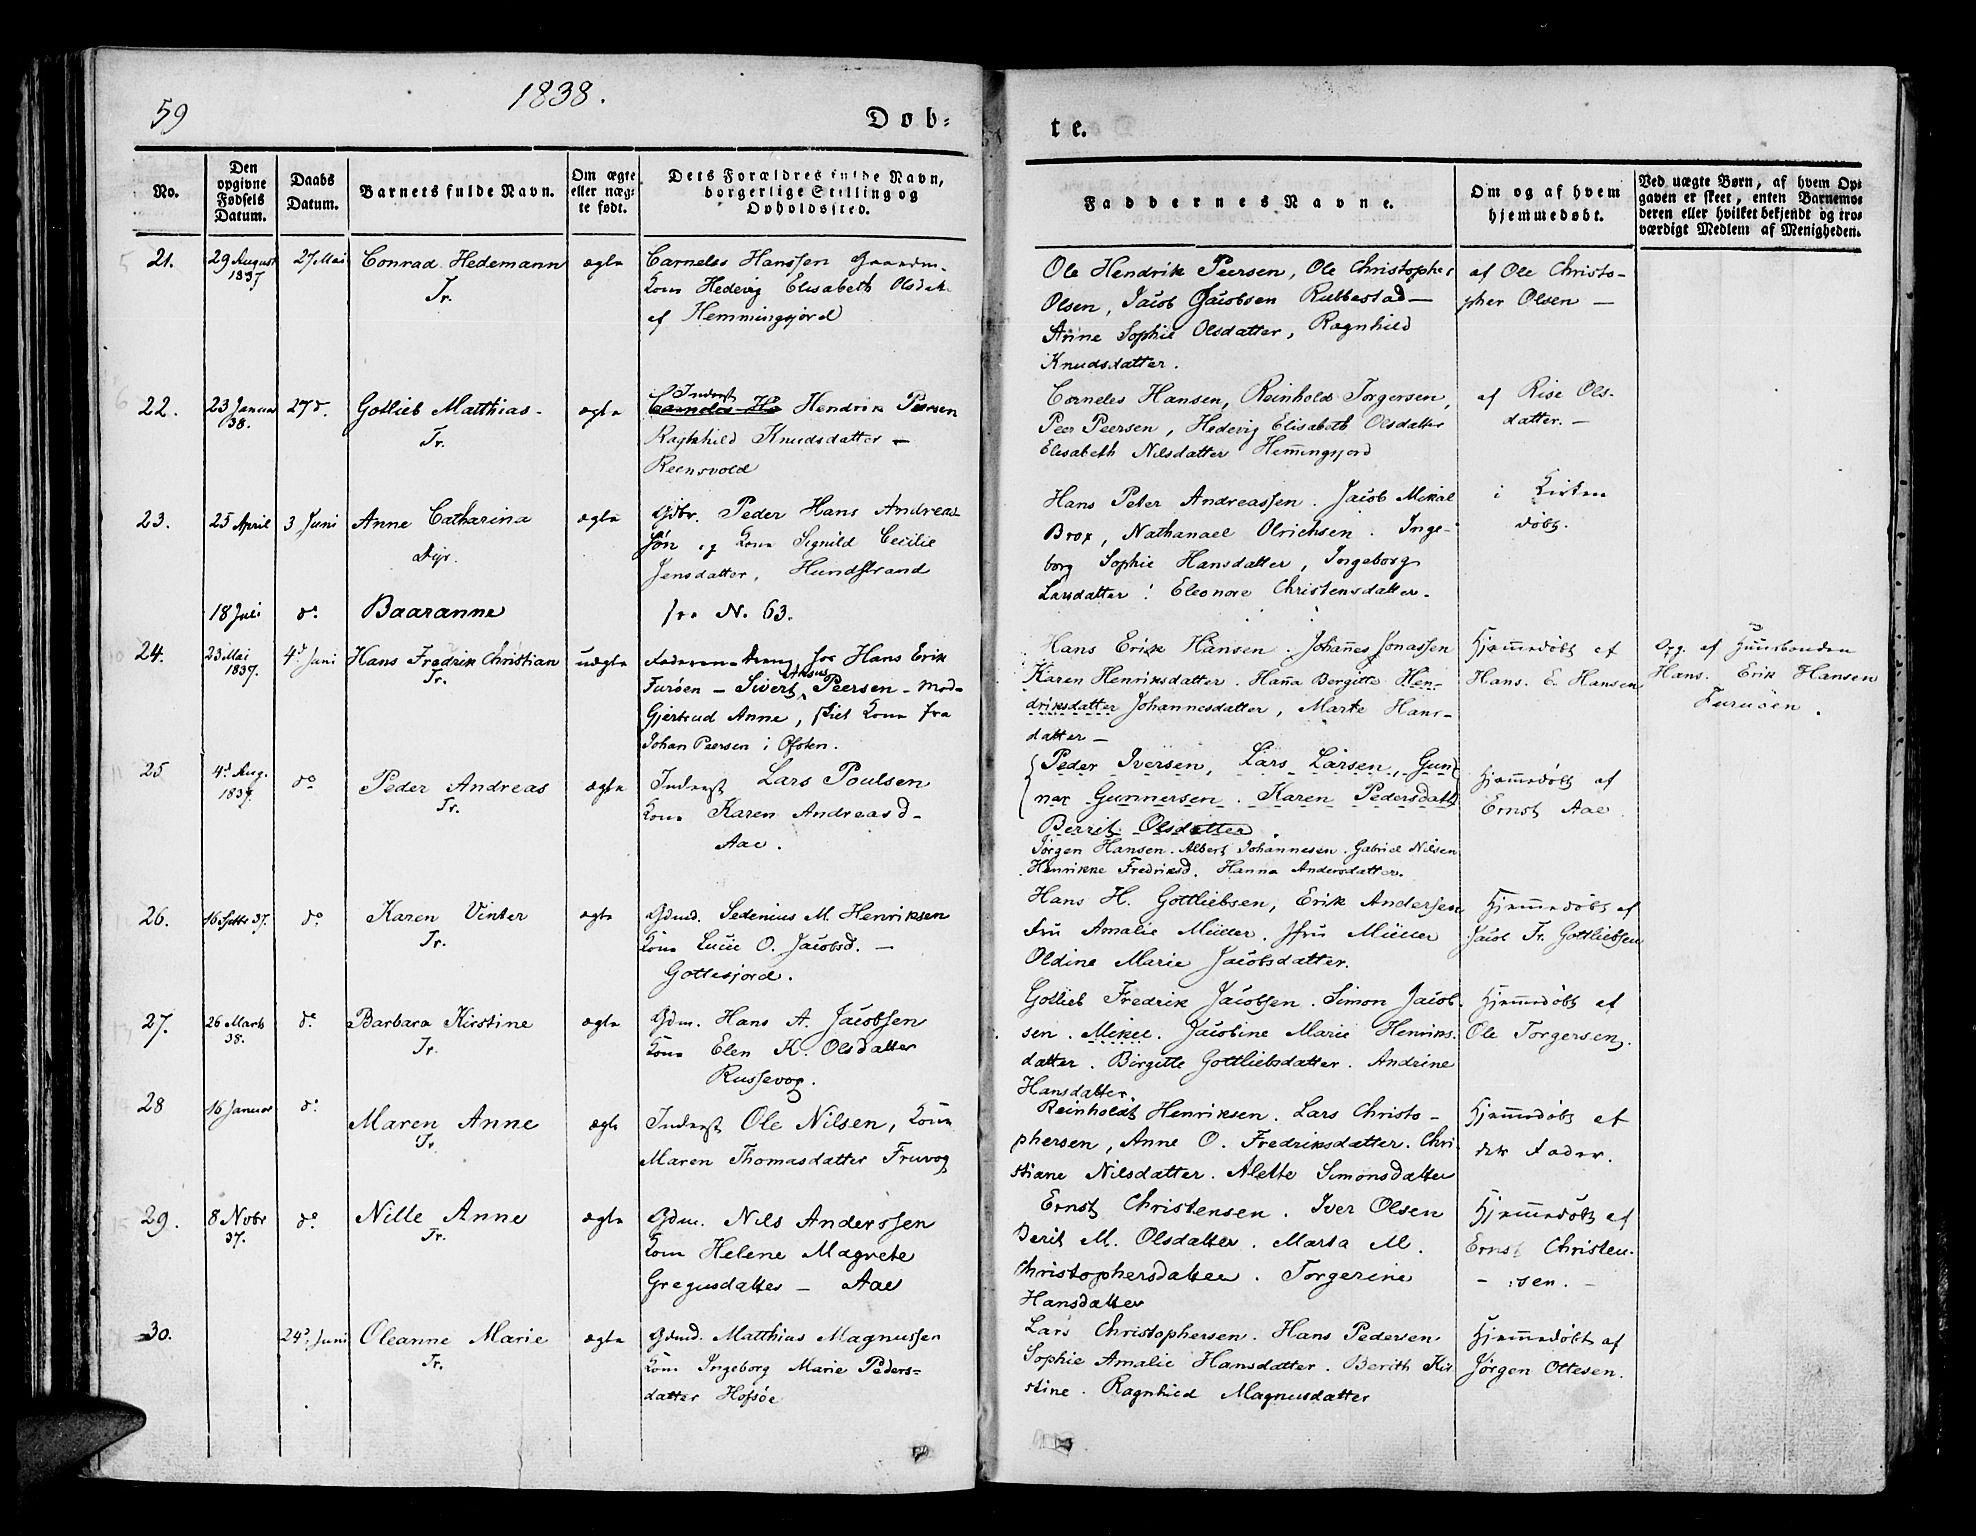 59
1838.
Døb-
te.
No.
Den opgivne Fødsels Datum.
Daabs Datum.
Barnets fulde Navn.
Om ægte eller uæg- te født.
Dets Forældres fulde Navn, borgerlige Stilling og Opholdssted.
Faddernes Navne.
Om og af hvem hjemmedøbt.
Ved uægte Børn, af hvem Op- gaven er skeet, enten Barnemo- deren eller hvilket bekjendt og tro- værdigt Medlem af Menigheden.
21. 29 August 1837 27 Mai Conrad Hedemann ægte Carneles Hanssen Gaardm.
Tr. Kone Hedevig Elisabeth Olsdat.
af Hemmingsjord
Ole Hendrik Peersen, Ole Christopher
Olsen, Jacob Jacobsen Rubbestad —
Anne Sophie Olsdatter, Ragnhild
Knudsdatter.
af Ole Christo-
pher Olsen —
22. 23 Januar 38. 27 d. Gotlieb Matthias - ægte Inderst
Carneles Ha Hendrik Peersen
Tr. Ragnhild Knudsdatter —
Reensvold
Corneles Hansen, Reinholdt Torgersen,
Peer Peersen, Hedevig Elisabeth Olsdatter
Elisabeth Nilsdatter Hemingsjord
af Rise Ols-
datter. —
23. 25 April 3 Juni Anne Catharina ægte Gdbr. Peder Hans Andreas
Døpt. søn og Kone Signild Cecilie
Jensdatter, Hundstrand
Hans Peter Andreassen. Jacob Mikal
Brox, Nathanael Olrichsen. Inge-
borg Sophie Hansdatter, Ingeborg
Larsdatter. Eleonore Christensdatter.
i Kirken
døbt.
18 Juli do Baaranne fra N. 63.
24. 23 Mai 1837. 4d Juni Hans Fredrik Christian uægte Hans Erik
Tr. Furøen — Sivert Peersen - Mod-
Gjertrud Anne, Kone fra
Johan Peersen i Ofoten.
Hans Erik Hansen. Johannes Jonassen
Karen Henriksdatter. Hana Bergitte Hen-
driksdatter Johannesdatter, Marte Hans-
datter —
Hjemmedøbt af
Hans. E. Hansen
Opg. af Huusbonden
Hans. Erik Hansen
Furuøen.
25 4d Aug. 1837. do Peder Andreas ægte Inderst Lars Poulsen
Tr. Kone Karen Andreasd-
Aae.
Peder Iversen, Lars Larsen, Gun-
nar Gunnersen. Karen Pedersdatt
Berrit Olsdatter.
Jørgen Hansen. Albert Johannesen. Gabriel Nilsen
Henrikke Fredriksd. Hanna Andersdatter.
Hjemmedøbt af
Ernst Aae
26. 16 Septbr 37. do Karen Vinter ægte Gdmd. Sedenius M. Henriksen
Tr. Kone Lucie O. Jacobsd. —
Gottesjord.
Hans H. Gottliebsen, Erik Andersen
Fru Amalie Müller. Jfru Müller
Oldine Marie Jacobsdatter.
Hjemmedøbt af
Jacob Fr. Gottliebsen
27. 26 Marts 38. do Barbara Kirstine ægte Gdm. Hans A. Jacobsen
Tr. Kone Elen K. Olsdatter
Russevog.
Gotlieb Fredrik Jacobsen. Simon Jacob-
sen. Mikel. Jacobine Marie Henriks-
datter. Birgitte Gottliebsdatter. Andrine
Hansdatter.
Hjemmedøbt af
Ole Torgersen.
28 16 Januar do Maren Anne ægte Inderst Ole Nilsen, Kone
Tr. Maren Thomasdatter Fruvog
Reinholdt Henriksen. Lars Christo-
phersen, Anne O. Fredriksdatter. Chri-
stiane Nilsdatter. Alette Simonsdatter
Hjemmedøbt af
dets Fader.
29. 8 Novbr 37. do Nille Anne ægte Gdm. Nils Anderssen
Tr. Kone Helene Magrete
Gregusdatter — Aae
Ernst Christensen. Iver Olsen
Berit M. Olsdatter. Marta M.
Christophersdatter. Torgerine
Hansdatter
Hjemmedøbt af
Ernst Christen-
- sen. -
30. 24d Juni Oleanne Marie ægte Gdmd. Matthias Magnussen
Tr. Kone Ingeborg Marie Peders-
datter Hofsøe
Lars Christophersen. Hans Pedersen
Sophie Amalie Hansdatter. Berith Kir-
stine. Ragnhild Magnusdatter
Hjemmedøbt af
Jørgen Ottesen.